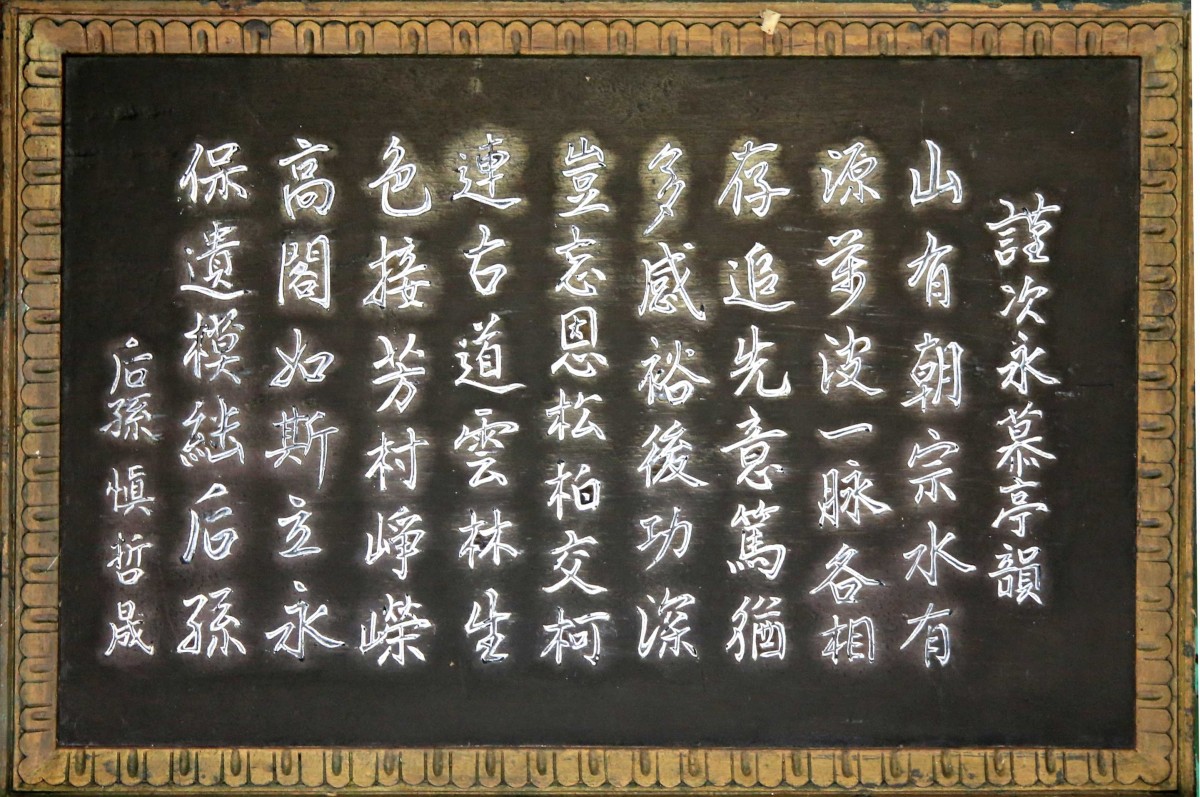 謹次永慕亭韻
山有朝宗水有
源萬波一脉各相
存追先意篤猶
多感裕後功深
豈忘恩松柏交柯
連古道雲林生
色接芳村崢嶸
高閣如斯立永
保遺模結后孫
后孫愼哲晟